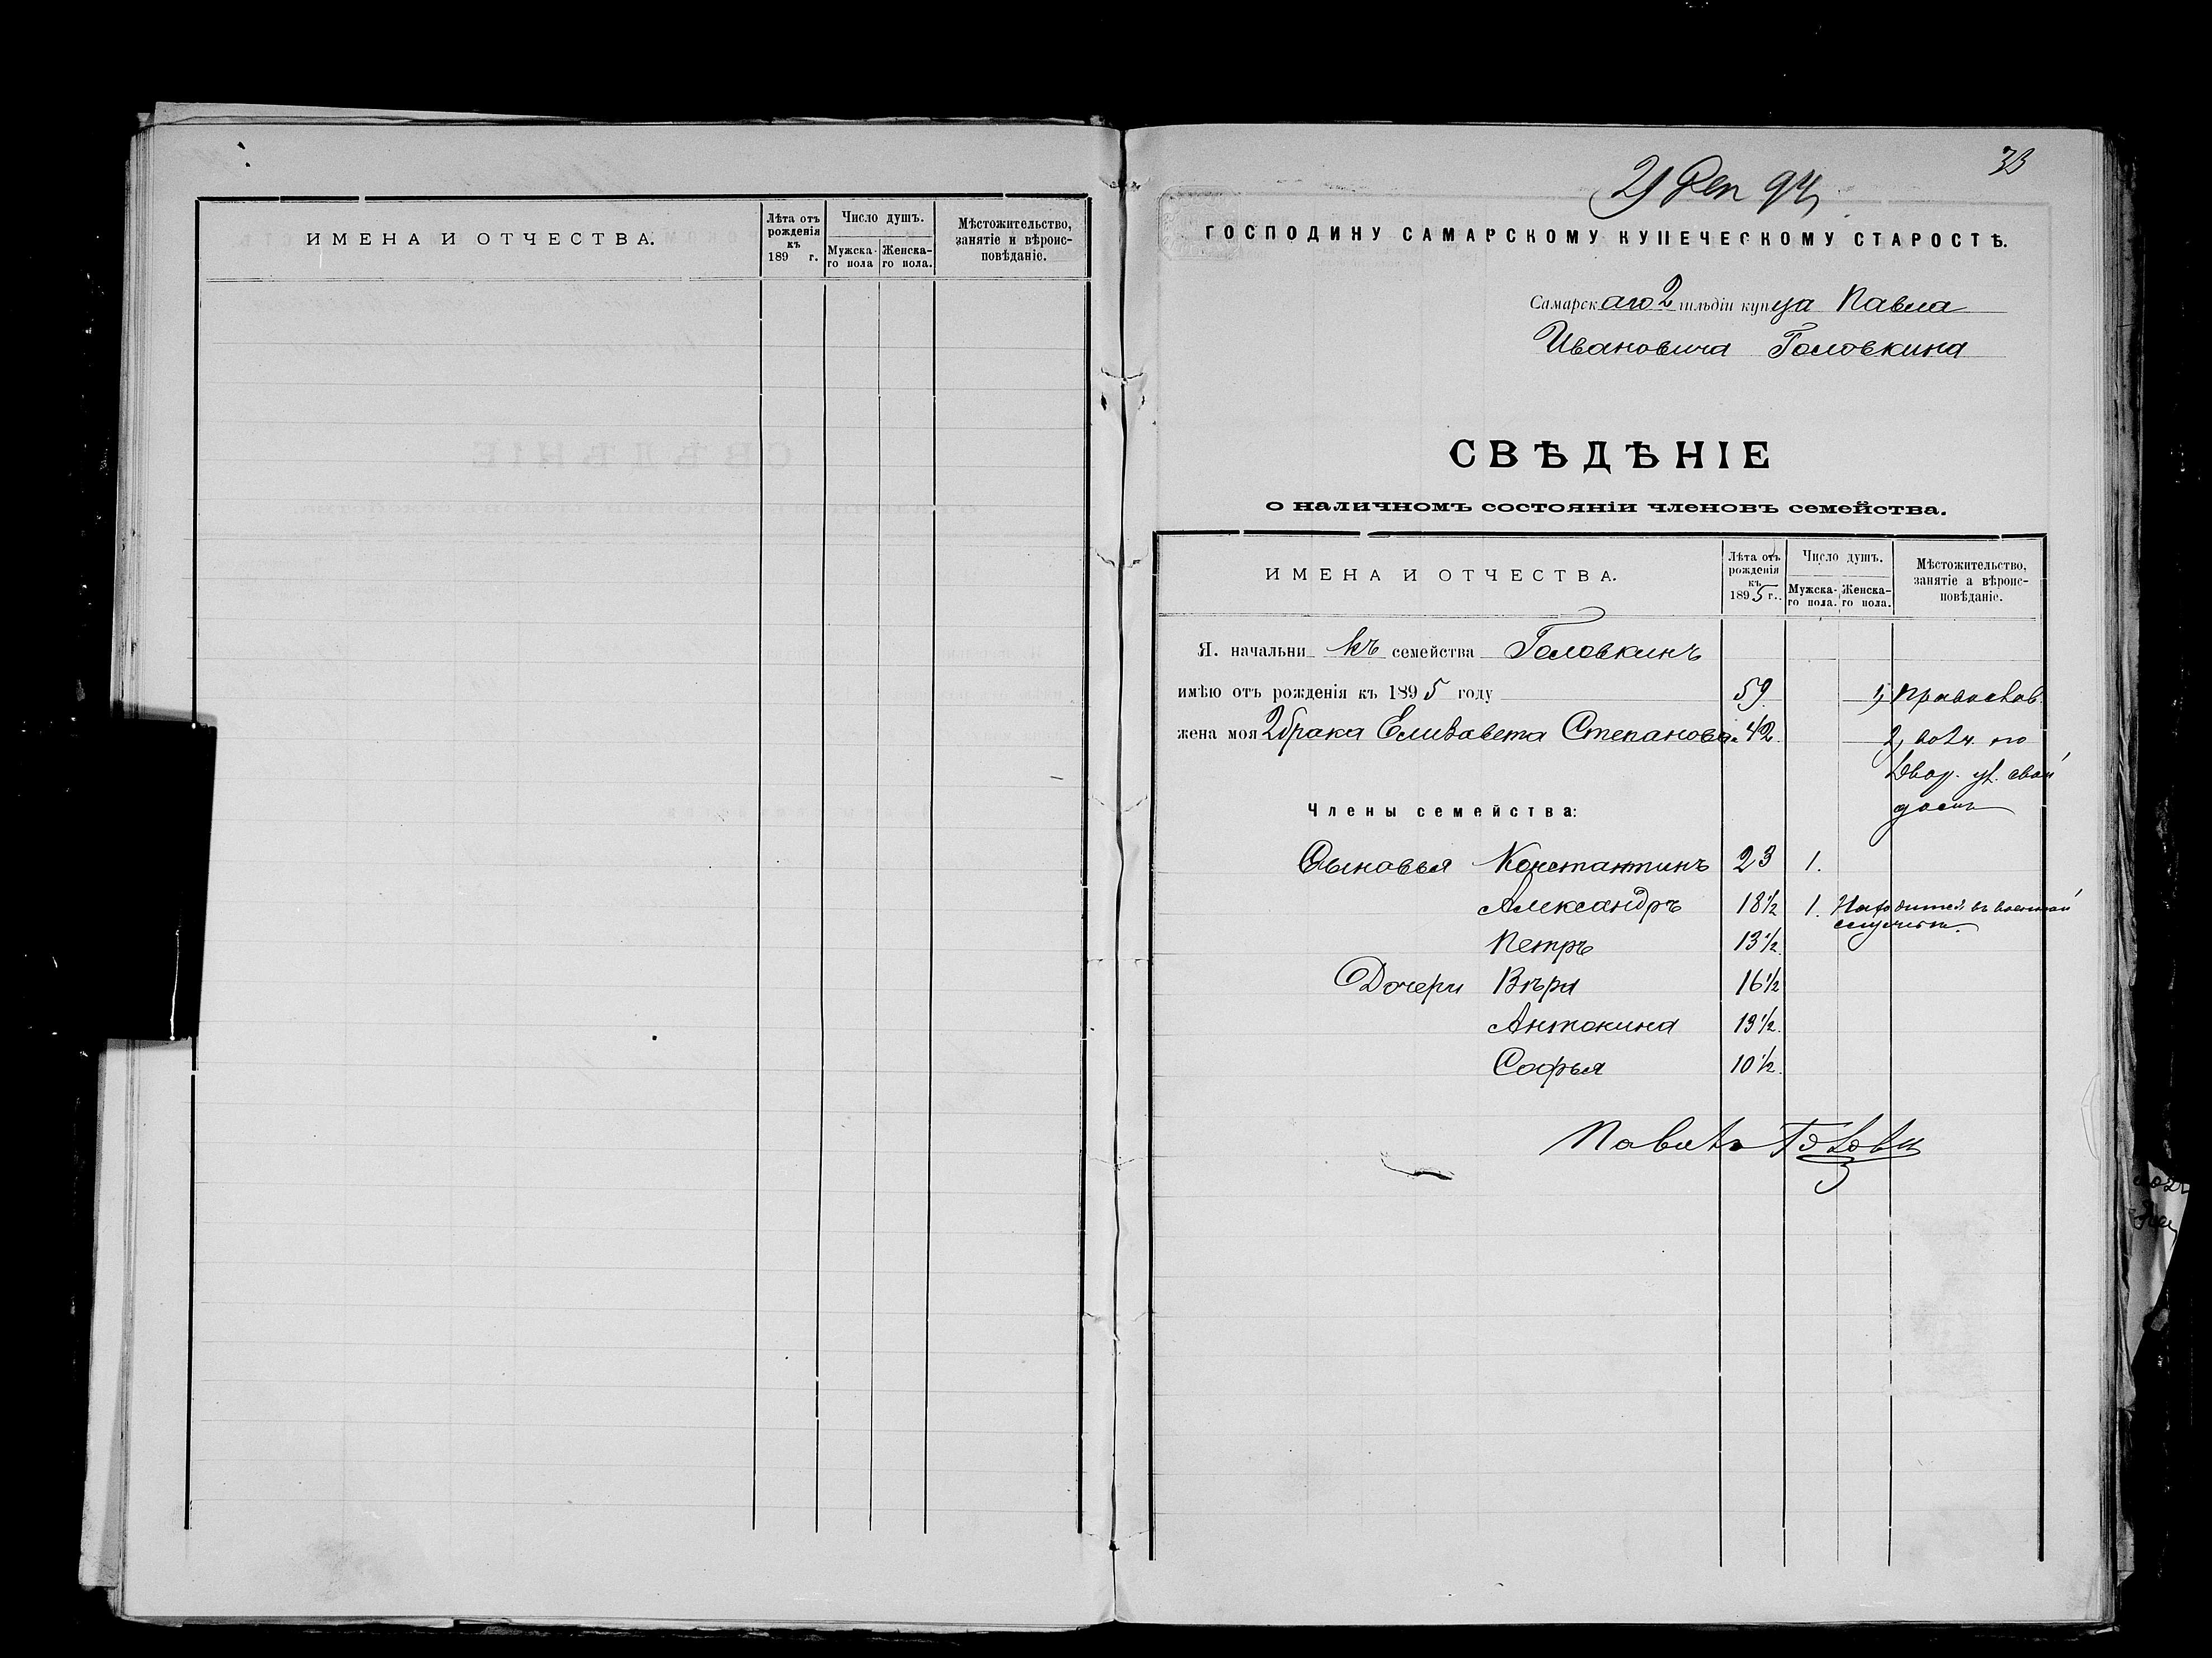 ИМЕНА И ОТЧЕСТВА.
Лѣта отъ рожденія къ 189 г.
Число душъ.
Мужска-го пола
Женска-го пола.
Мѣстожительство, занятіе и вѣроис-повѣданіе.
33
21 Дек 94
ГОСПОДИНУ САМАРСКОМУ КУПЕЧЕСКОМУ СТАРОСТѢ.
Самарскаго 2 гильдіи купца Павла
Ивановича Головкина
СВѢДѢНІЕ
о наличномъ состояніи членовъ семейства.
ИМЕНА И ОТЧЕСТВА.
Лѣта отъ рожденія къ 1895 г.
Число душъ.
Мужска-го пола.
Женска-го пола.
Мѣстожительство, занятіе а вѣроис-повѣданіе.
Я. начальникъ семейства Головкинъ
имѣю отъ рожденія къ 1895 году 59 1, Православ.
жена моя 2 брака Елизавета Степановна 42. 2, по
Двор. ул. свой
домъ
Члены семейства:
Сыновья Константинъ 23 1.
Александръ 18½ 1. Находится въ военной
Петръ 13½
Дочери Вѣра 16½
Антонина 13½
Софья 10½
Павелъ